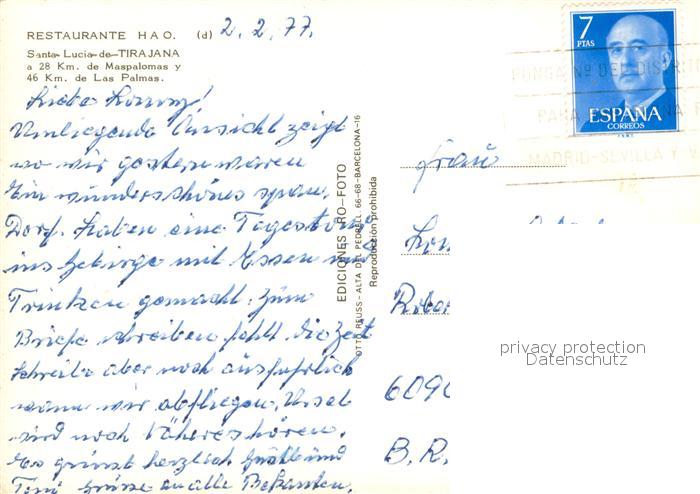 RESTAURANTE HAO. (d) 2.2.77.
Santa Lucia-de-TIRAJANA
a 28 Km. de Maspalomas y
46 Km. de Las Palmas.
Umliegende Ansicht zeigt
wo wir gestern waren
Ein wunderschönes span.
Dorf. Haben eine Tagestour
ins Gebirge mit Essen und
Trinken gemacht. Zum
Briefe schreiben fehlt die Zeit
Schreibe aber noch ausführlich
wann wir abfliegen.
sind noch Näheres hören.
Es grüsst herzlich und
Toni Grüsse an alle Bekannten.
EDICIONES RO-FOTO
OTTO REUSS - ALTA DEL PEDRELL 66-68-BARCELONA-16
Reproducción prohibida
7
PTAS
ESPAÑA
CORREOS
PONGA Nº DEL DISTRITO
PARA
MADRID-SEVILLA Y V
Frau
privacy protection
Datenschutz
B.R.